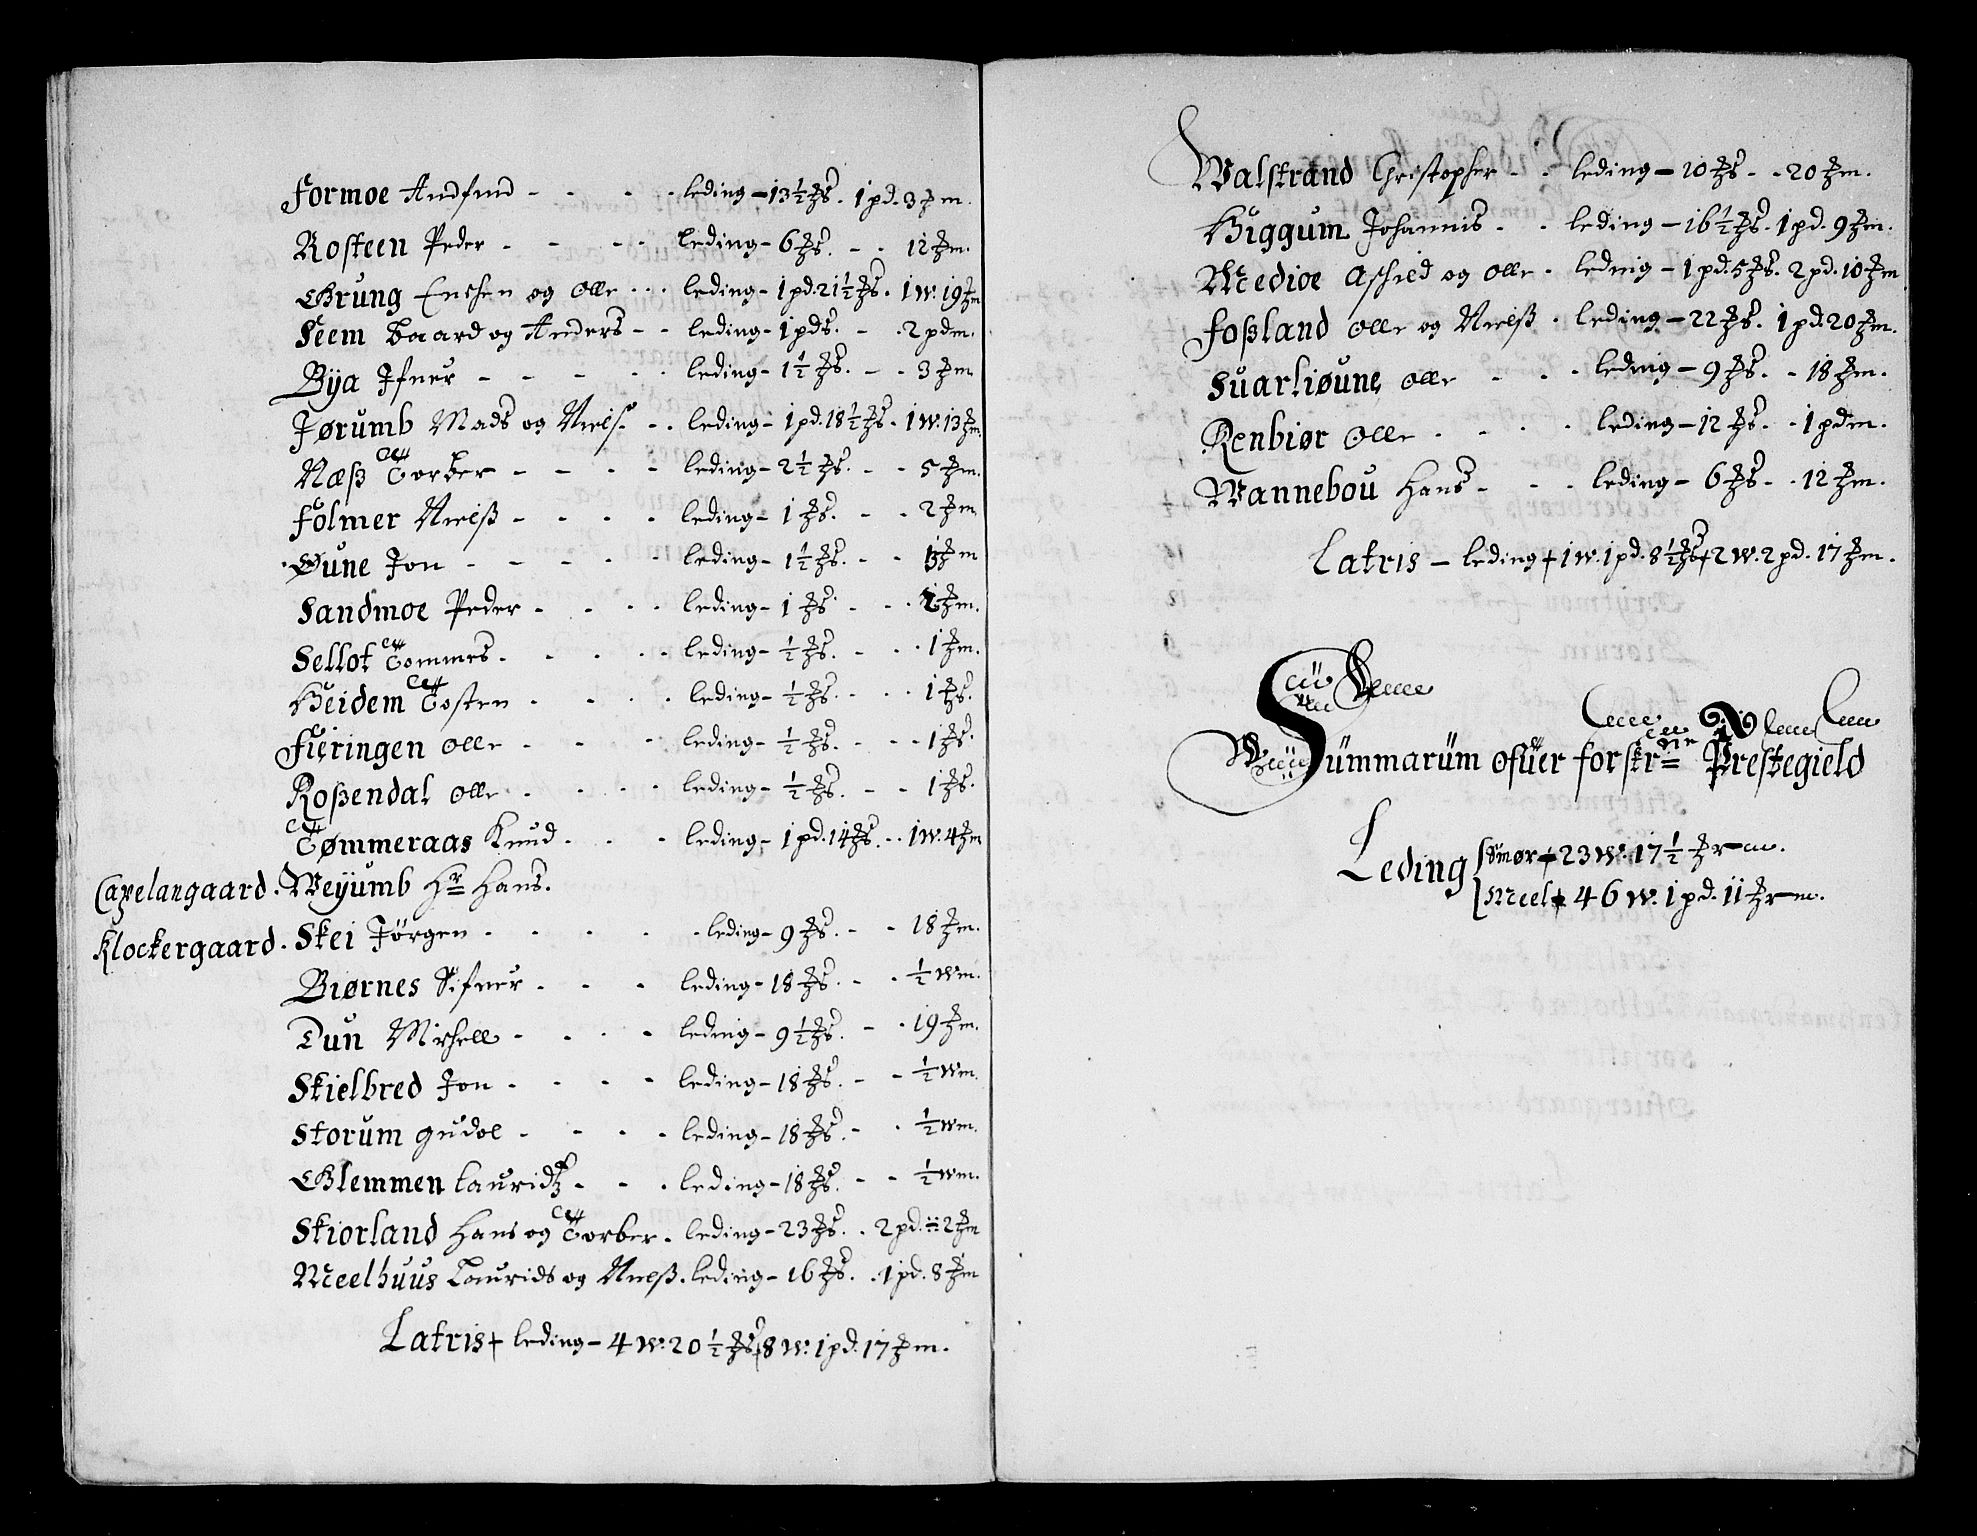 Formoe Andfind - - - - leding - 13½ ℔s. 1 pd. 3 ℔m.
Rosteen Peder - - - - leding - 6 ℔s. - - 12 ℔m.
Grung Enchen og Olle - - - leding - 1 pd. 21½ ℔s. 1 w. 19 ℔m
Seem Baard og Anders - - leding - 1 pd s. - - 2 pd m.
Bÿa Ifuer - - - - - leding - 1½ ℔s. - - 3 ℔m
Jørumb Mads og Nielß - - leding - 1 pd. 18½ ℔s. 1 w. 13 ℔m.
Næß Torber - - - - leding - 2½ ℔s. - - 5 ℔m.
Folmer Nielß - - - - leding - 1 ℔s. - - 2 ℔m
Øune Jon - - - - - leding - 1½ ℔s. - - 3 ℔m
Sandmoe Peder - - - - leding - 1 ℔s - - - 2 ℔m.
Sellot Tommes - - - - leding - ½ ℔s. - - - 1 ℔m.
Heidem Tosten - - - - leding - ½ ℔s. - - - 1 ℔s.
Fieringen Olle - - - - leding - ½ ℔s. - - - 1 ℔s.
Roßendal Olle - - - - leding - ½ ℔s. - - 1 ℔s.
Tømmeraas Knud - - - leding - 1 pd. 14 ℔s. - - 1 w. 4 ℔m
Capelangaard. Weÿumb Hr Hans.
Klockergaard. Skei Jörgen - - - - - leding - 9 ℔s. - - 18 ℔m.
Biørnes Sifuer - - - leding - 18 ℔s. - - ½ w m.
Dun Michell - - - - leding - 9½ ℔s. - - 19 ℔m.
Skielbred Jon - - - - leding - 18 ℔s. - - ½ w m.
Storum gudoe - - - - leding - 18 ℔s. - - ½ w m.
Glemmen Lauridtz - - - leding - 18 ℔s. - - ½ w m.
Skiorland Hans og Torber - leding - 23 ℔s. - 2 pd. 2 ℔m
Meelhuus Laurids og Nielß. leding - 16 ℔s. - 1 pd. 8 ℔m
Latris leding - 4 w. 20½ ℔s 8 w. 1 pd. 17 ℔m.
Walstrand Christopher - - leding - 10 ℔s - - 20 ℔m.
Higgum Johannis - - leding - 16½ ℔s. 1 pd. 9 ℔m.
Medioe Aschild og Olle - leding - 1 pd. 5 ℔s. 2 pd. 10 ℔m
Foßland Olle og Nielß - leding - 22 ℔s. 1 pd. 20 ℔m.
Suarliøune Olle - - - leding - 9 ℔s. - - 18 ℔m.
Renbiør Olle - - - - leding - 12 ℔s. - - 1 pd m.
Wannebou Hans - - - leding - 6 ℔s - - 12 ℔m.
Latris - leding 1 w. 1 pd. 8½ ℔s 2 w. 2 pd. 17 ℔m.
Summarum ofuer forskrne Prestegield
Leding Smør 23 w. 17½ ℔r m.
Meel 46 w. 1 pd. 11 ℔r m.